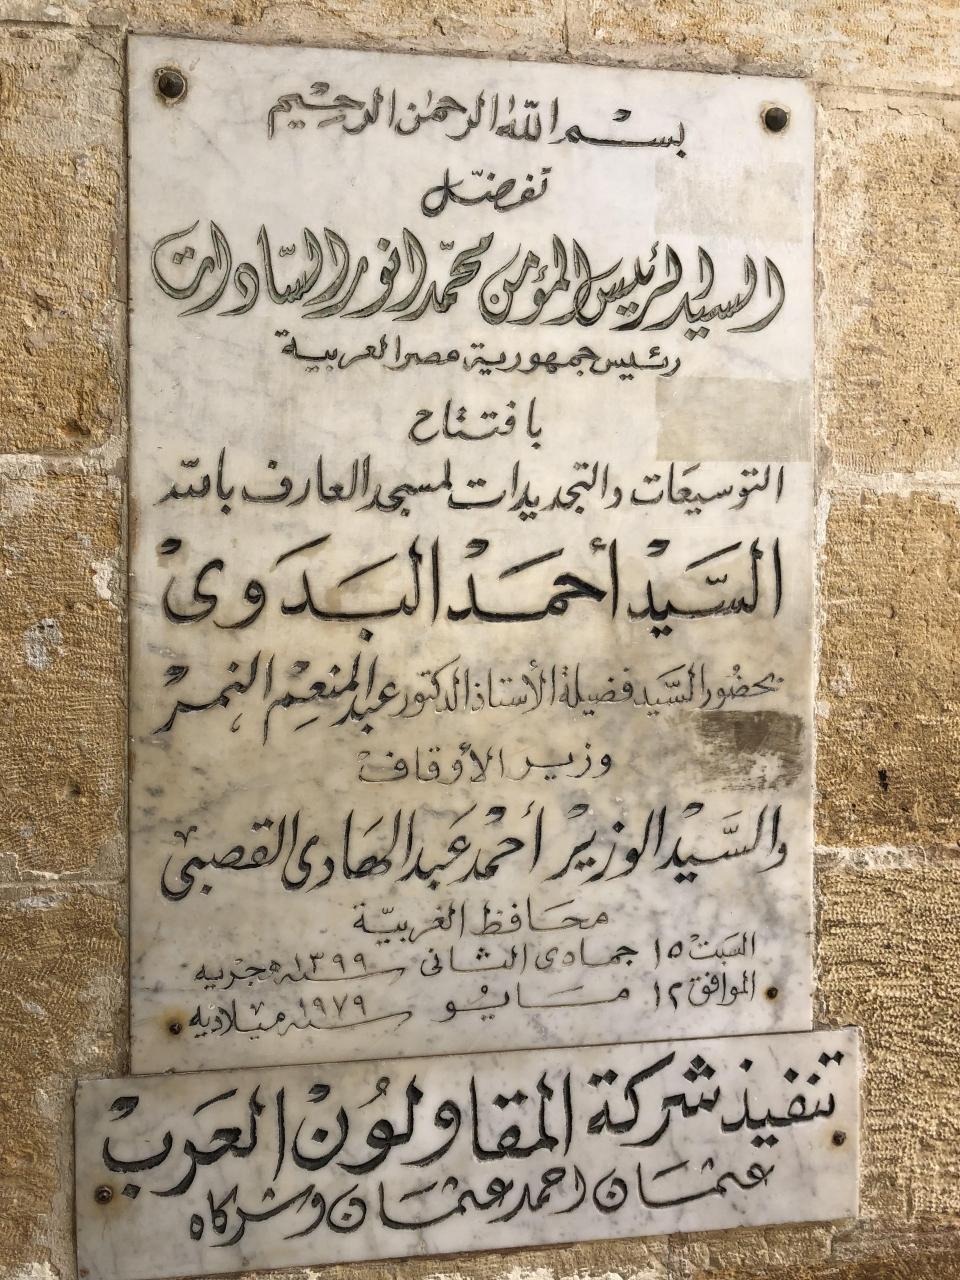 بسم الله الرحمن الرحيم
تفضل
السيد الرئيس المؤمن محمد انور السادات
رئيس جمهورية مصر العربية
بافتتاح
التوسيعات والتجديدات لمسجد العارف بالله
السيد أحمد البدوى
بحضور السيد فضيلة الأستاذ الدكتور عبد المنعم النمر
وزير الأوقاف
والسيد الوزير أحمد عبد الهادى القصبى
محافظ الغربية
السبت ١٥ جمادى الثانى سنة ١٣٩٩ هجريه
الموافق ١٢ مايو سنة ١٩٧٩ ميلاديه
تنفيذ شركة المقاولون العرب
عثمان احمد عثمان وشركاه